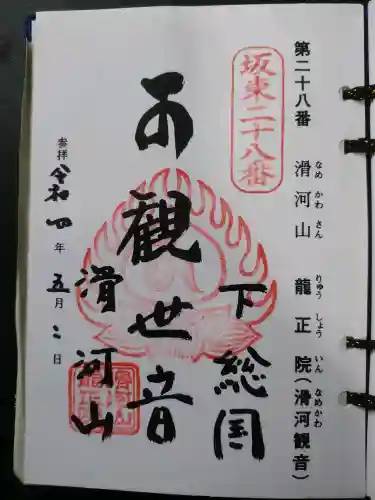 第二十八番 滑河山 龍正院(滑河観音)
なめ かわ さん りゅう しょう いん なめかわ
坂東二十八番
下総国
観世音
滑河山
参拝 令和四年 五月二日